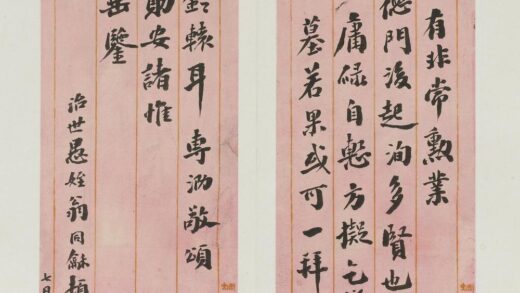 有非常勳業
德門後起洵多賢也
庸碌自慙方擬乞
墓若果或可一拜
轅耳專泐敬頌
勛安諸惟
垂鑒
治世愚姪翁同龢頓
七